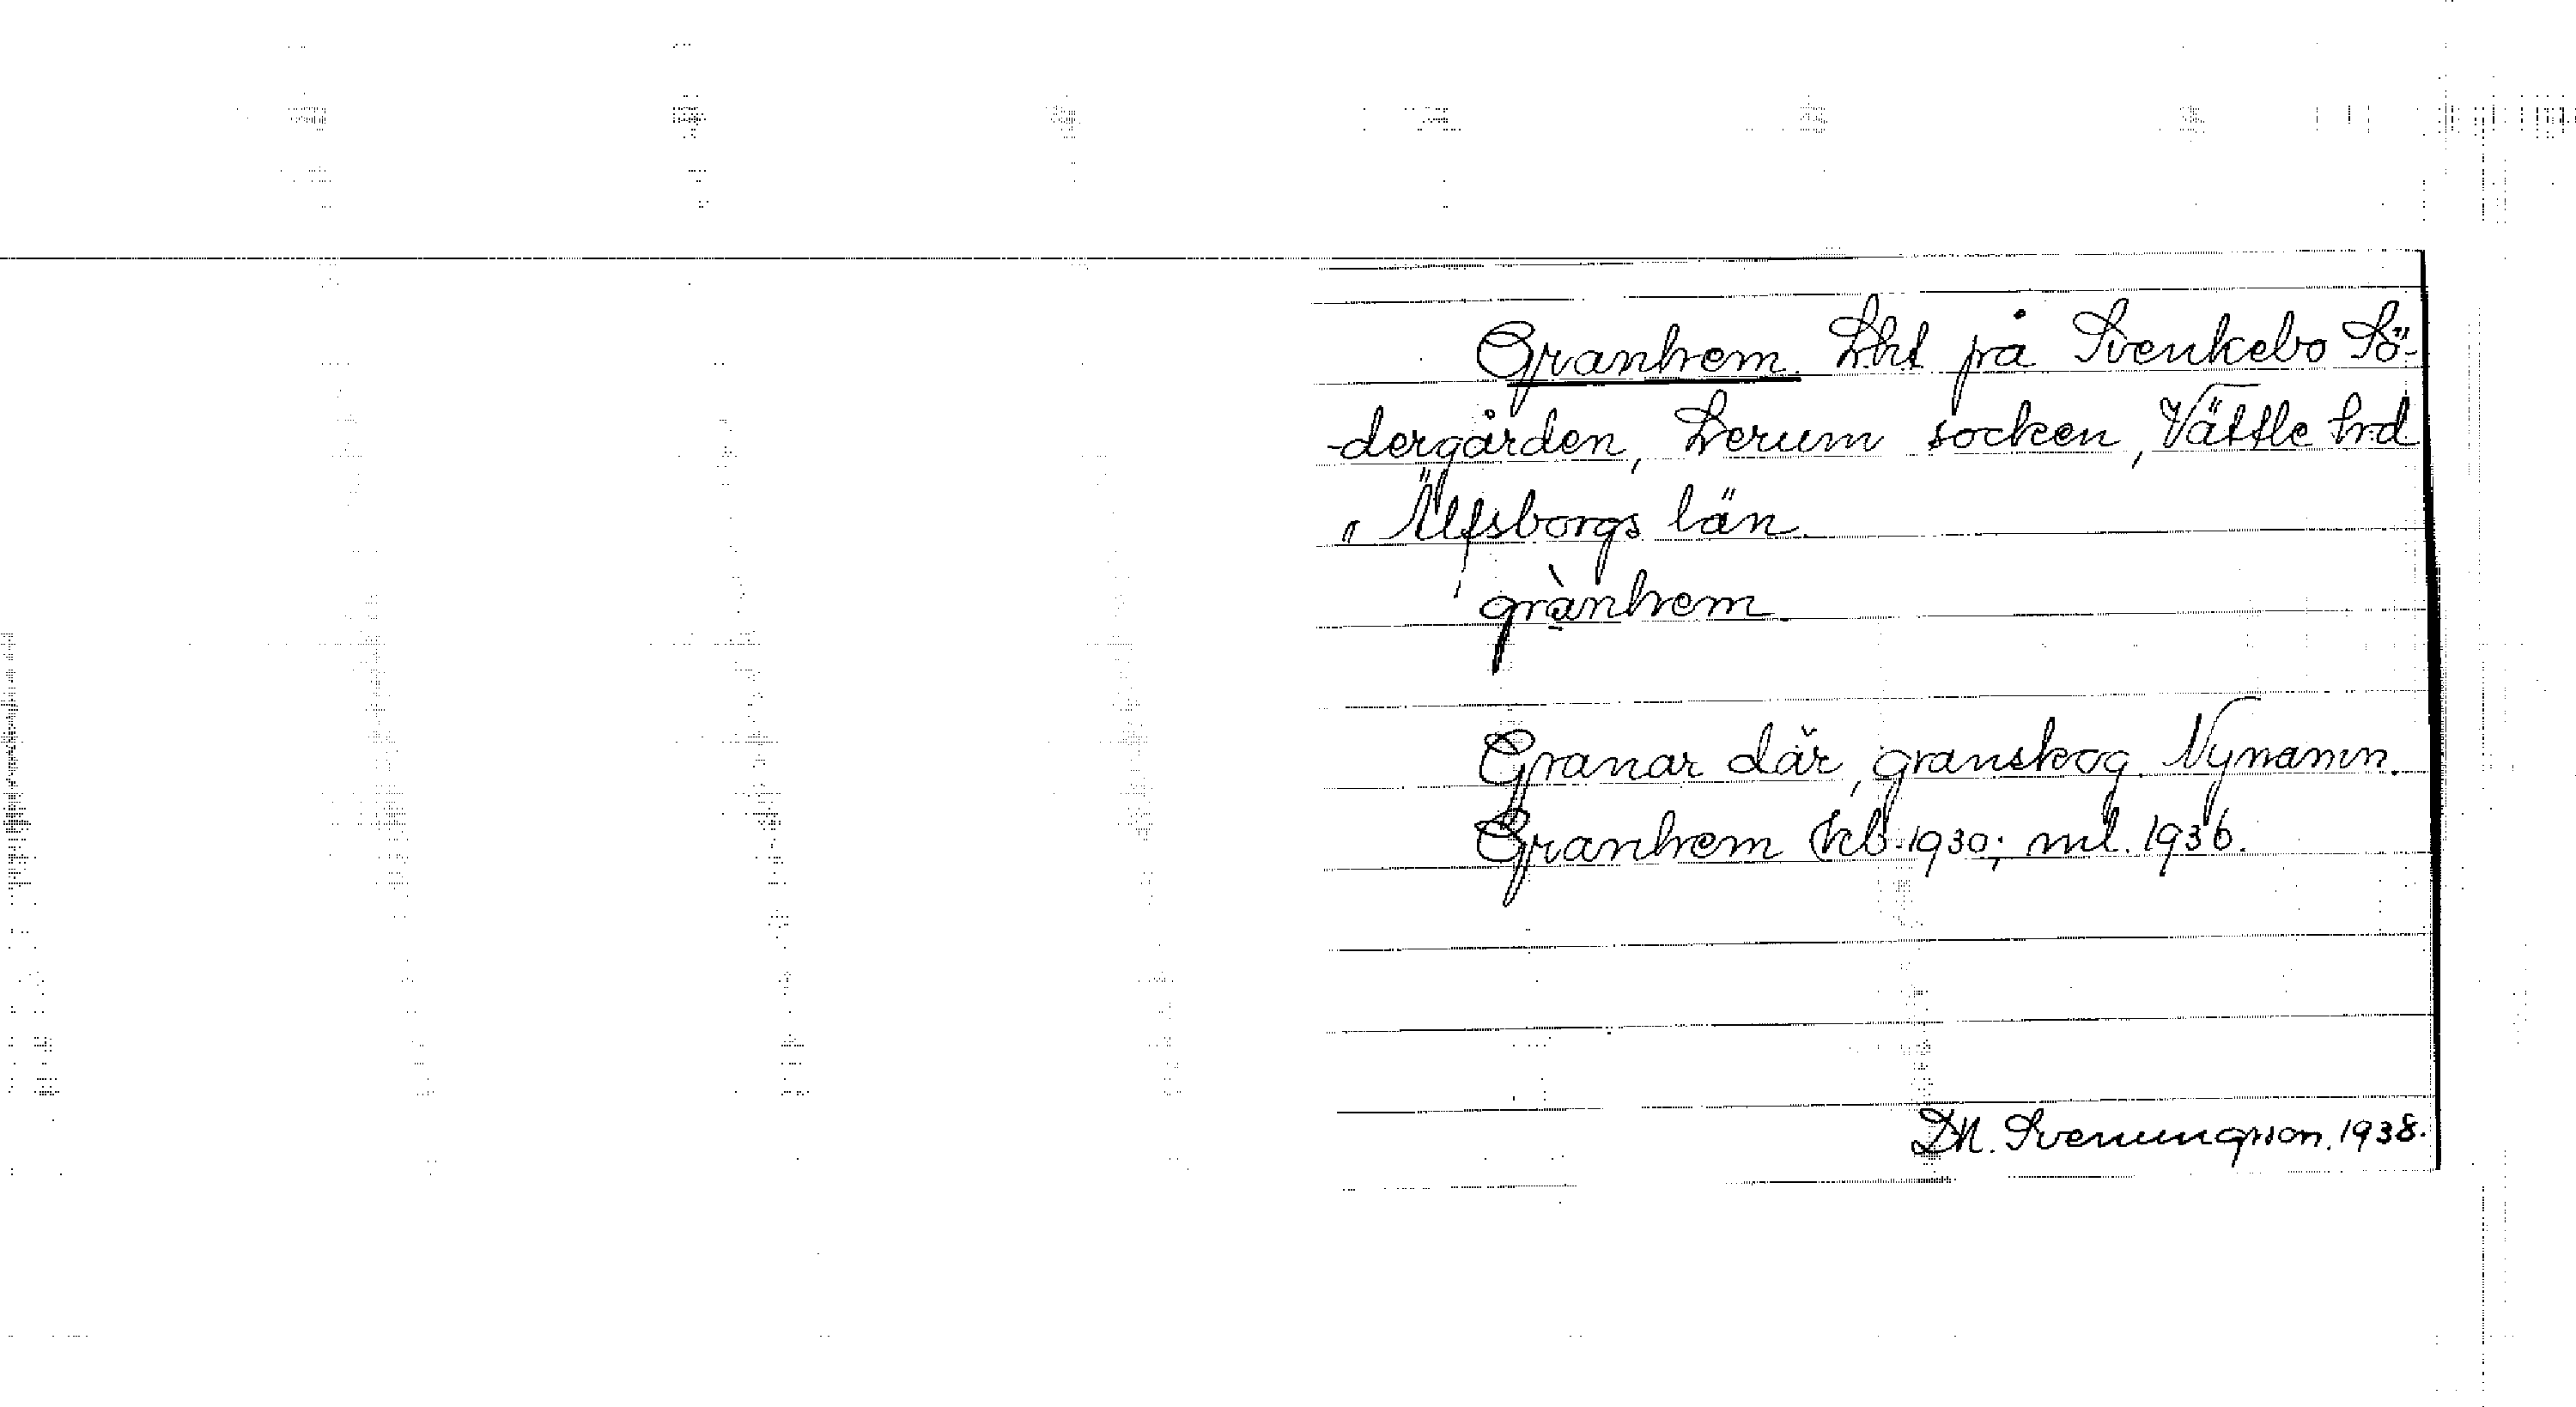 Granhem. Lht på Svenkebo Sö-
-dergården, Lerum socken, Vättle hd
" Älfsborgs län.
grànhem
Granar där, granskog. Nynamn.
Granhem (kb. 1930; ml. 1936.
D.N. Svenungsson. 1938.